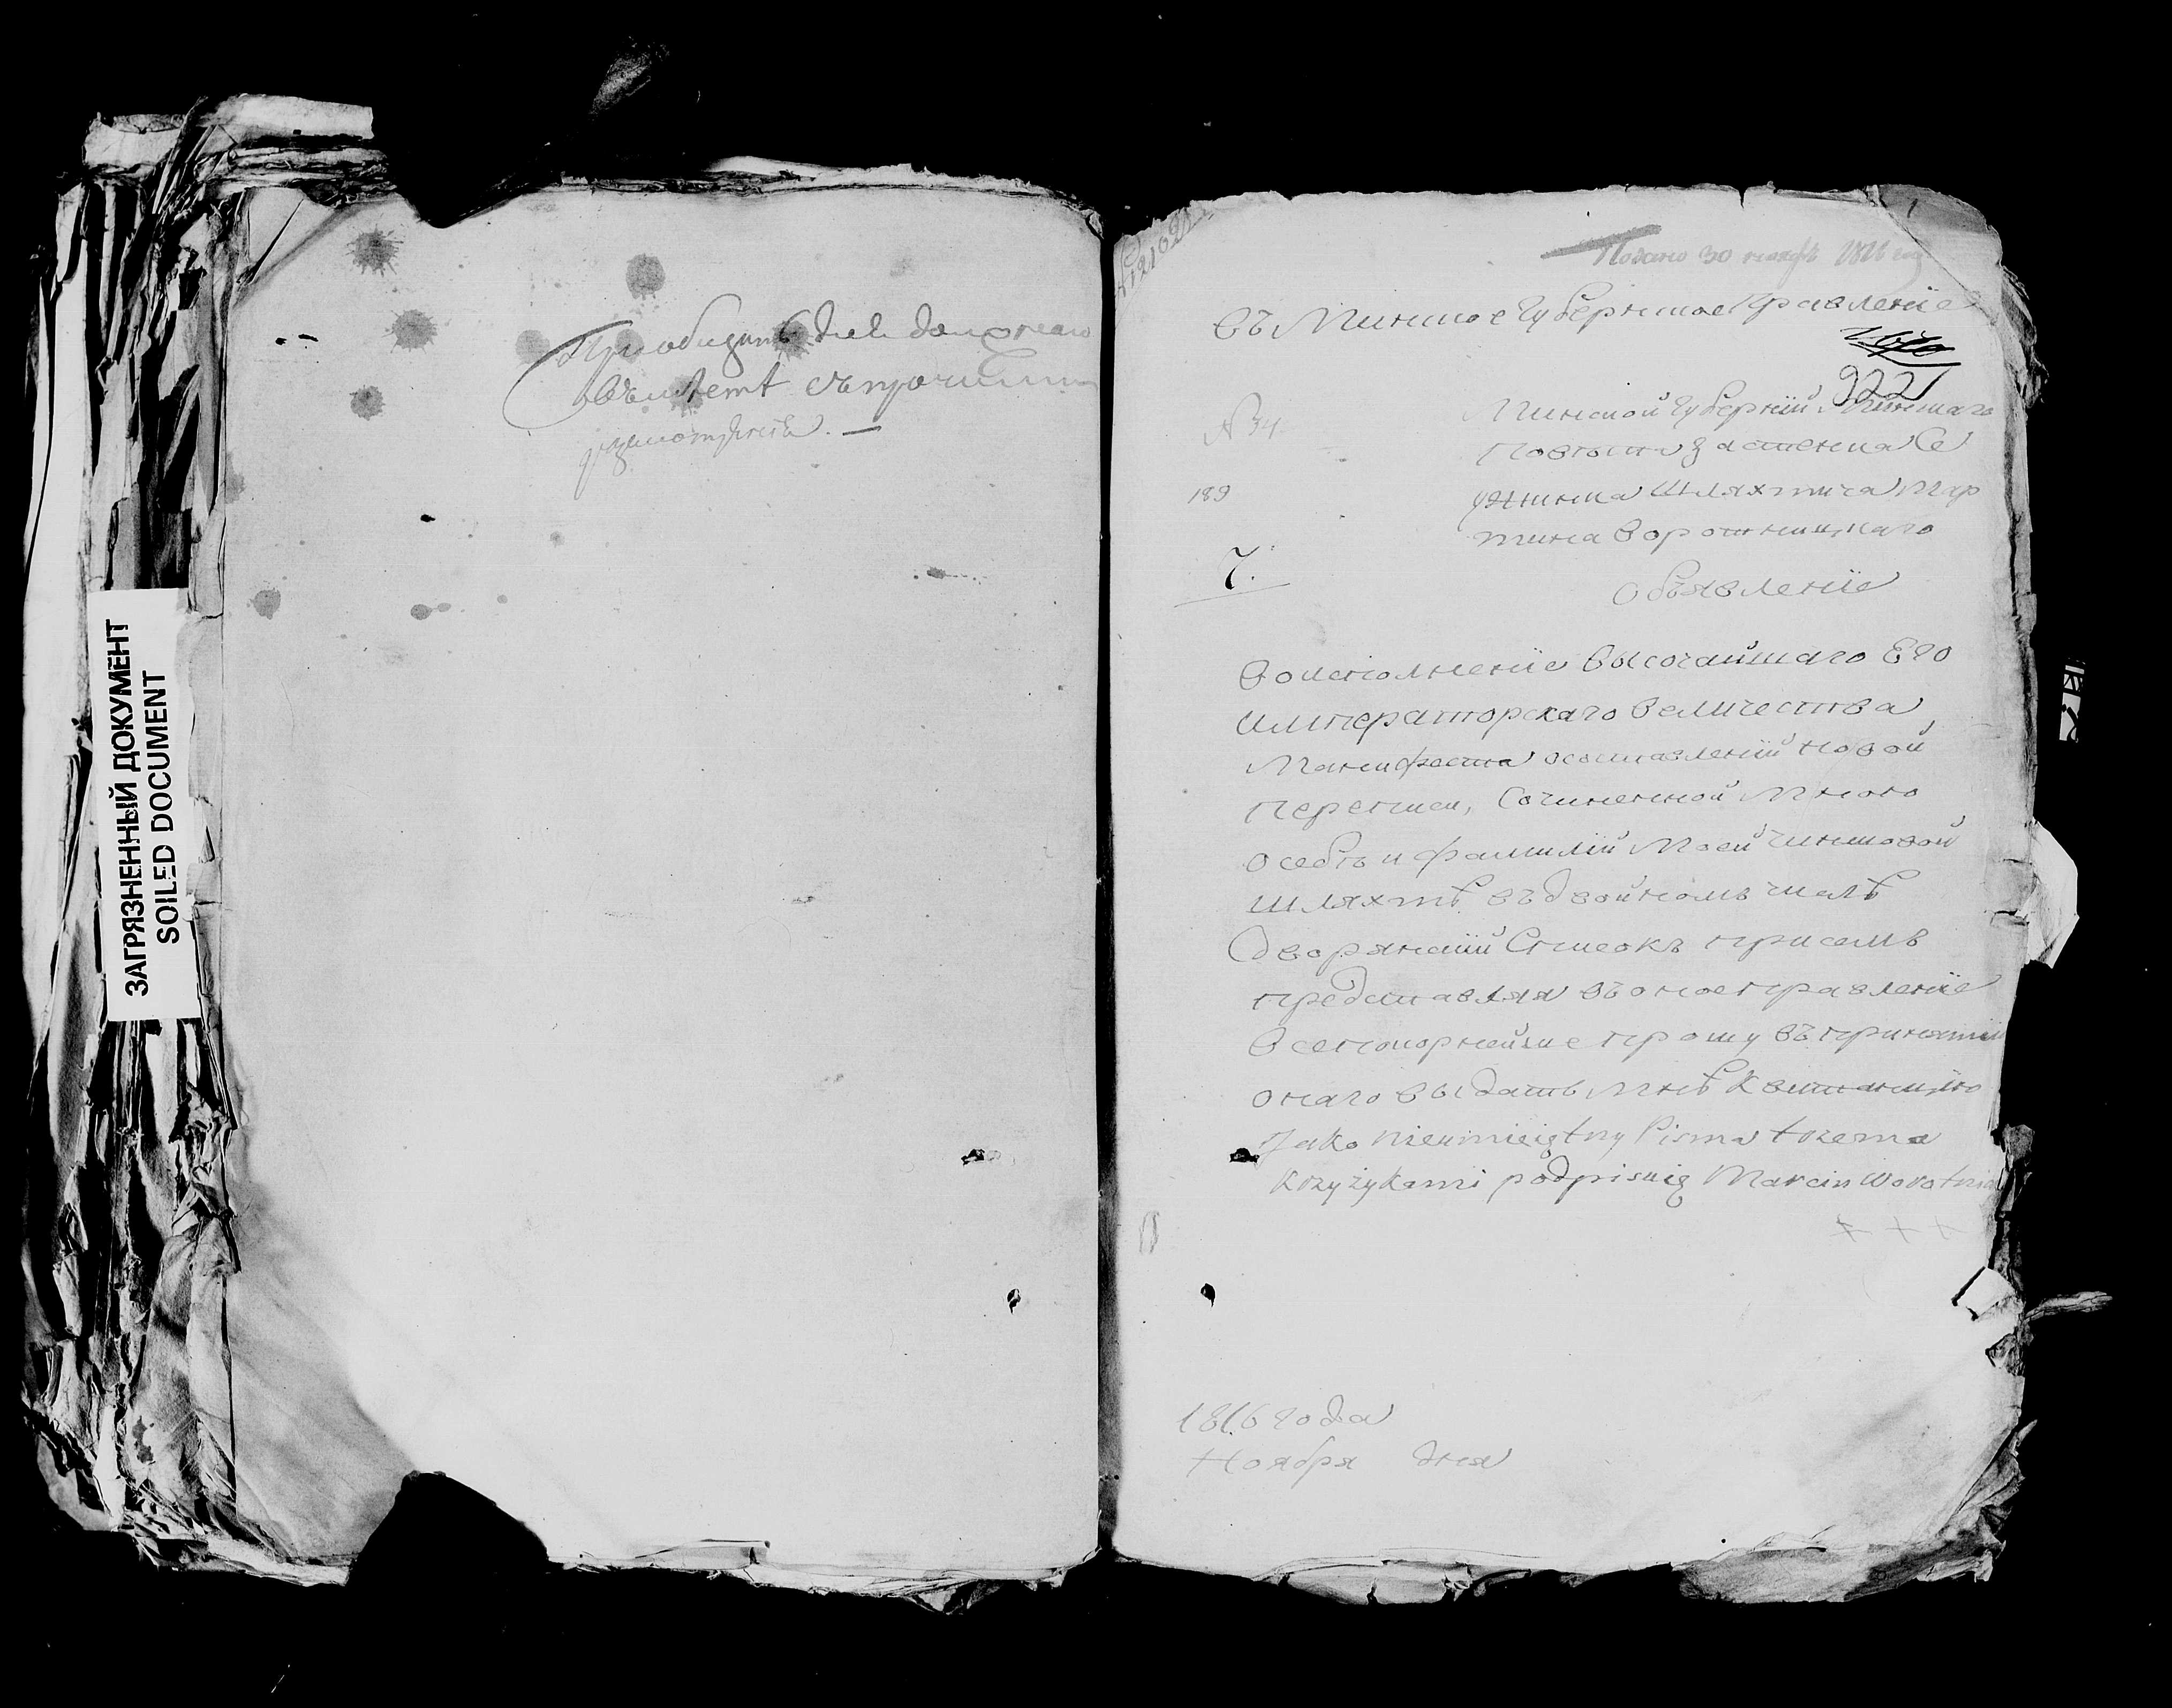 ЗАГРЯЗНЕННЫЙ ДОКУМЕНТ
SOILED DOCUMENT
съ прочими
1
Подано 30 ноября 1816 года
Въ Минское Губернское Правленіе
9221
№ 34.
Минской Губерніи Минскаго
Повѣта застенка Се
189
шляхтича Мар
тина Воротницкаго
7.
Объявленіе
Во исполненіе Высочайшаго Его
Императорскаго Величества,
Манифеста о составленіи новой
переписи, Сочиненной Мною
о себѣ и фамиліи Моей чиншовой
шляхтѣ въ двойномъ числѣ
Дворянскій Списокъ при семъ
представляя въ оное правленіе
Всепокорнейше прошу въ принятіи
онаго выдать мнѣ Квитанцію
Jako nieumieiętny Pisma trzema
krzyżykami podpisuię Marcin Worotnic
+ + +
1816 года
Ноября дня